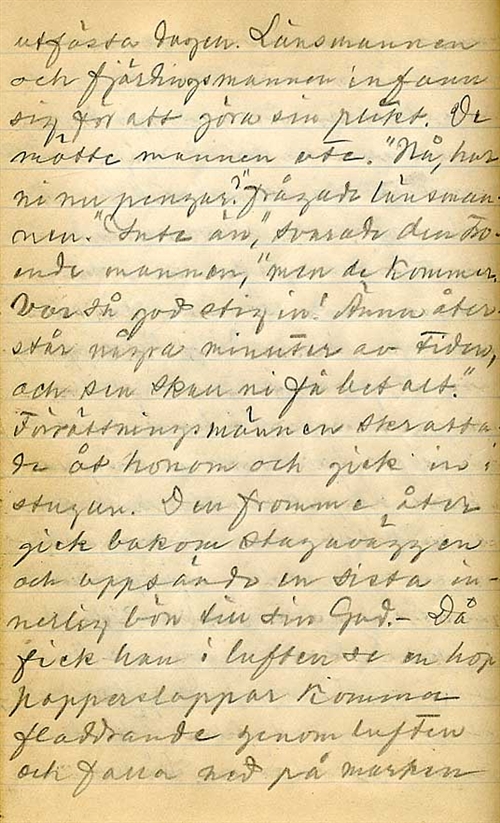 utfästa dagen. Länsmannen
och fjärdingsmannen infann
sig för att göra sin plikt. De
mötte mannen ute. "Nå, har
ni nu pengar?" frågade länsman-
nen. "Inte än," svarade den tro-
ende mannen, "men de kommer.
Var så god stig in! Ännu åter-
står några minuter av tiden,
och sen skall ni få betalt."
Förrättningsmännen skratta-
de åt honom och gick in i
stugan. Den fromme åter
gick bakom stuguväggen
och uppsände en sista in-
nerlig bön till sin Gud. – Då
fick han i luften se en hop
papperslappar komma
fladdrande genom luften
och falla ned på marken